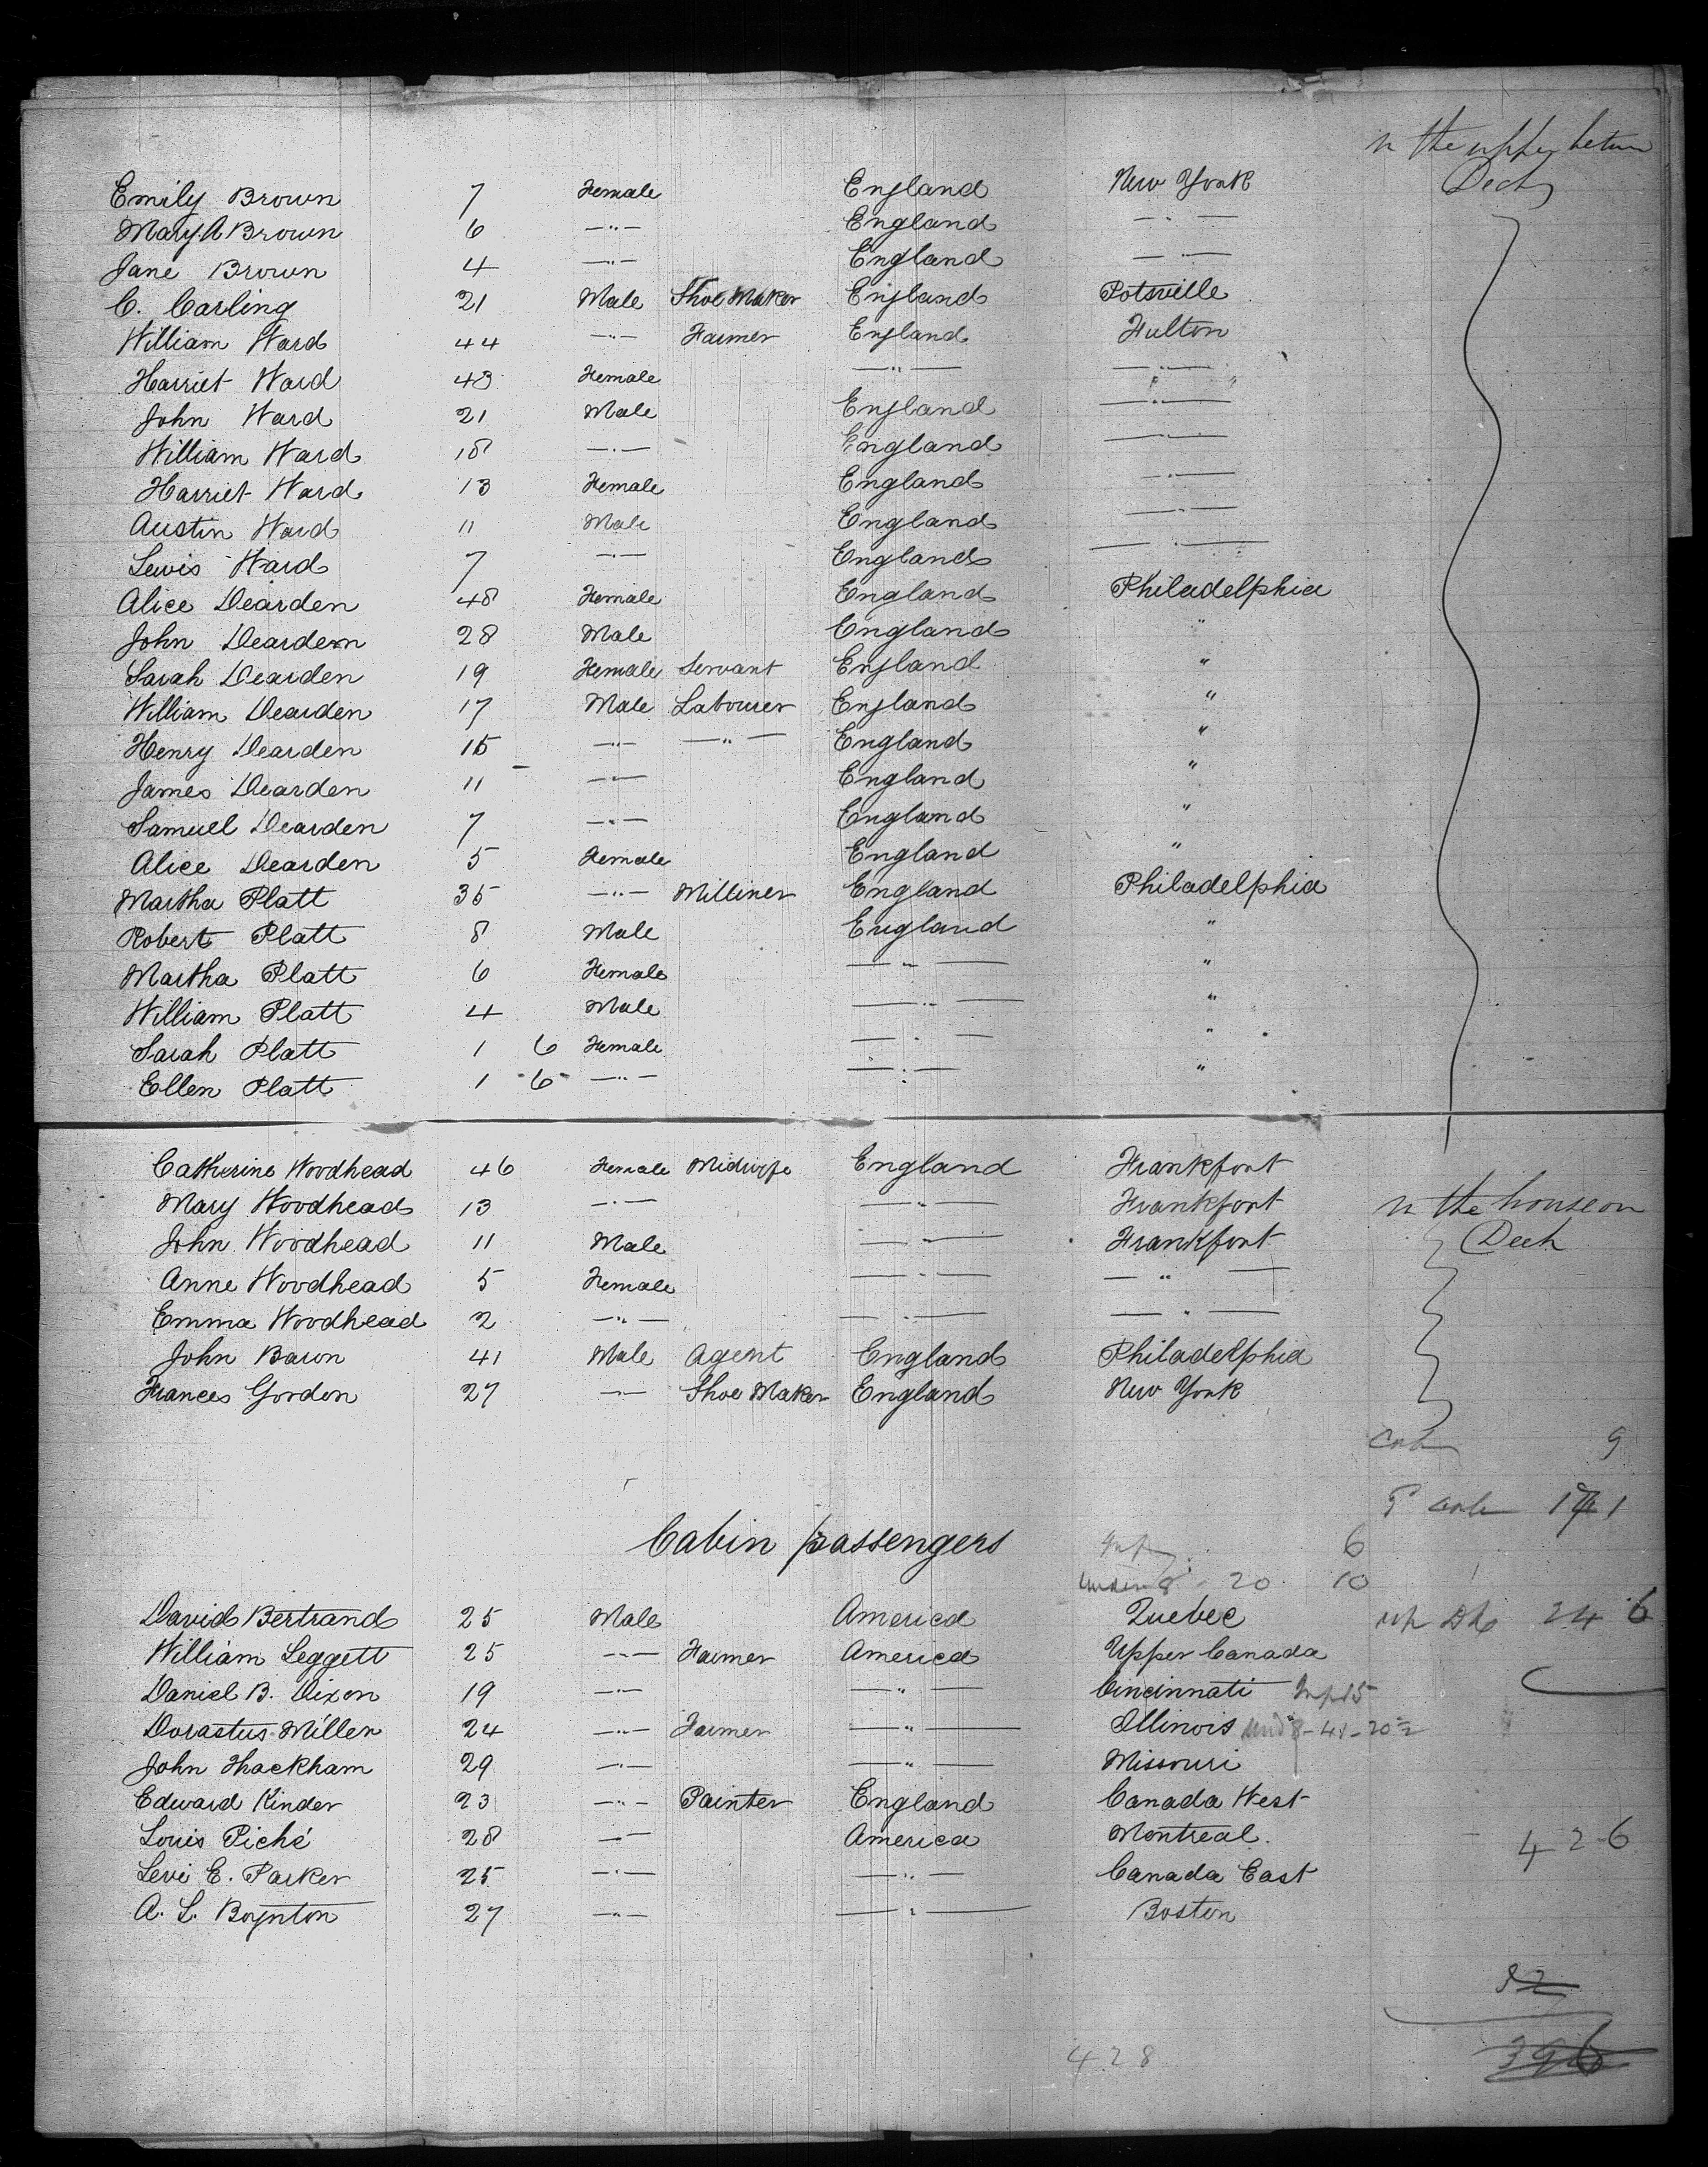 in the upper between
Emily Brown 7 Female England New York Deck
Mary A Brown 6 —"— England —"—
Jane Brown 4 —"— England —"—
C. Carling 21 Male Shoe Maker England Potsville
William Ward 44 —"— Farmer England Fulton
Harriet Ward 43 Female —"— —"—
John Ward 21 Male England —"—
William Ward 18 —"— England —"—
Harriet Ward 13 Female England —"—
Austin Ward 11 Male England —"—
Lewis Ward 7 —"— England —"—
Alice Dearden 48 Female England Philadelphia
John Dearden 28 Male England "
Sarah Dearden 19 Female Servant England "
William Dearden 17 Male Labourer England "
Henry Dearden 15 —"— —"— England "
James Dearden 11 —"— England "
Samuel Dearden 7 —"— England "
Alice Dearden 5 Female England "
Martha Platt 35 —"— Milliner England Philadelphia
Robert Platt 8 Male England "
Martha Platt 6 Female —"— "
William Platt 4 Male —"— "
Sarah Platt 1 6 Female —"— "
Ellen Platt 1 6 —"— —"— "
Catherine Woodhead 46 Female Midwife England Frankfort
Mary Woodhead 13 —"— —"— Frankfort in the house on
John Woodhead 11 Male —"— Frankfort Deck
Anne Woodhead 5 Female —"— —"—
Emma Woodhead 2 —"— —"— —"—
John Baron 41 Male Agent England Philadelphia
Frances Gordon 27 —"— Shoe Maker England New York
9
Cabin passengers 6
under 8 20 10
David Bertrand 25 Male America Quebec 24 6
William Leggett 25 —"— Farmer America Upper Canada
Daniel B. Dixon 19 —"— —"— Cincinnati
Dorastus Miller 24 —"— Farmer —"— Illinois
John Thackham 29 —"— —"— Missouri
Edward Kinder 23 —"— Painter England Canada West
Louis Piché 28 —"— America Montreal. 426
Levi E. Parker 25 —"— —"— Canada East
A. L. Boynton 27 —"— —"— Boston
32
428 396